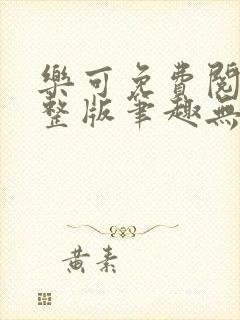 樂可免費閱
整版筆趣無
黃素